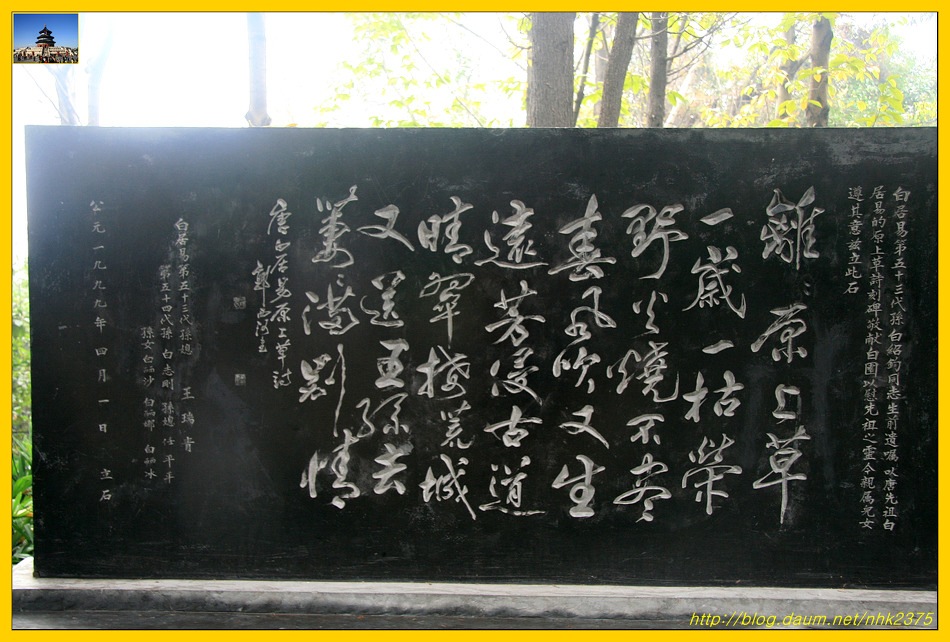 白居易第五十三代孫白紹鈞同志生前遺嘱以唐先祖白
居易的原上草詩刻碑敬献白園以慰先祖之靈今親属兒女
遵其意兹立此石
離〻原上草
一歲一枯榮
野火燒不尽
春風吹又生
遠芳侵古道
晴翠接荒城
又送王孫去
萋〻滿別情
唐白居易原上草詩
白居易第五十三代孫媳 王瑞青
第五十四代孫 白志剛 孫媳 任平
孫女 白 沙 白 娜 白 冰
公元一九九九年四月一日 立石
http://blog.daum.net/nhk2375